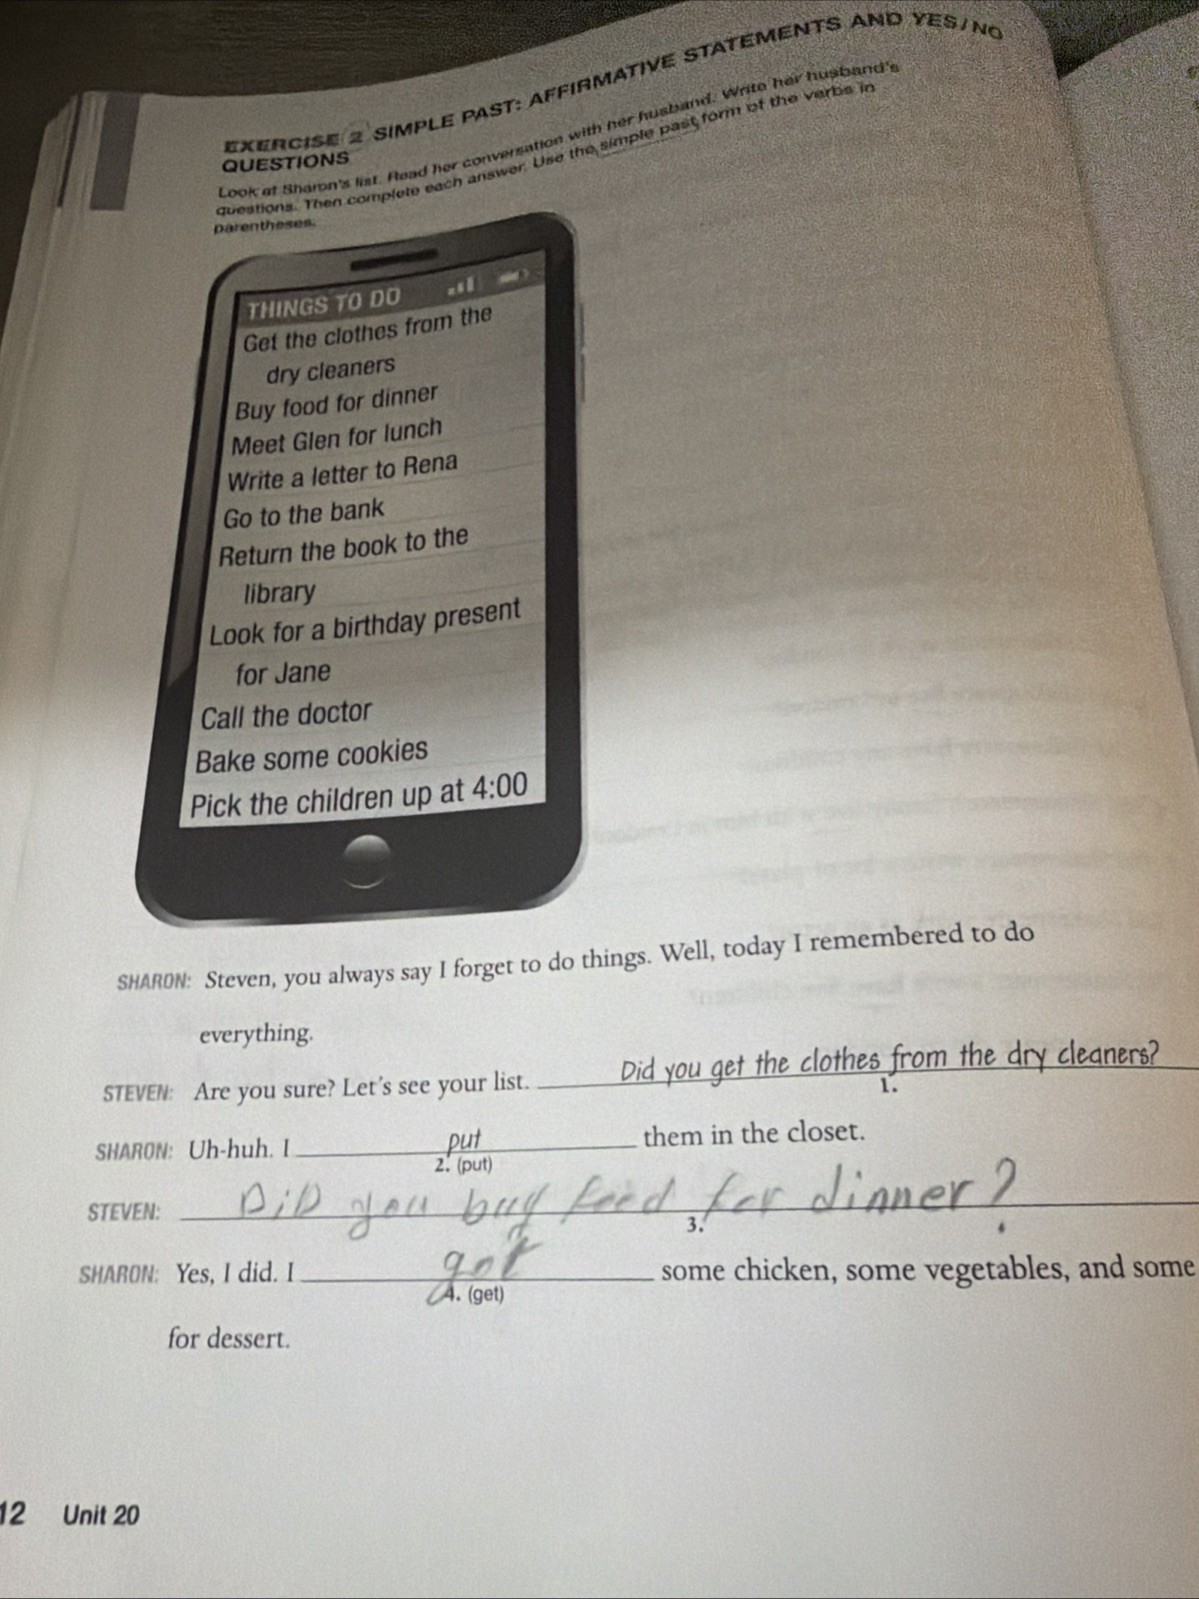 EXERCISE 2 SIMPLE PAST: AFFIRMATIVE STATEMENTS AND YES/NO
QUESTIONS
Look at Sharon's list. Read her conversation with her husband. Write her husband's
questions. Then complete each answer. Use the simple past form of the verbs in
parentheses.
THINGS TO DO
Get the clothes from the
dry cleaners
Buy food for dinner
Meet Glen for lunch
Write a letter to Rena
Go to the bank
Return the book to the
library
Look for a birthday present
for Jane
Call the doctor
Bake some cookies
Pick the children up at 4:00
SHARON: Steven, you always say I forget to do things. Well, today I remembered to do
everything.
STEVEN: Are you sure? Let's see your list. Did you get the clothes from the dry cleaners?
1.
SHARON: Uh-huh. I put them in the closet.
2. (put)
STEVEN: DiD you buy food for dinner?
3.
SHARON: Yes, I did. I got some chicken, some vegetables, and some
4. (get)
for dessert.
12 Unit 20